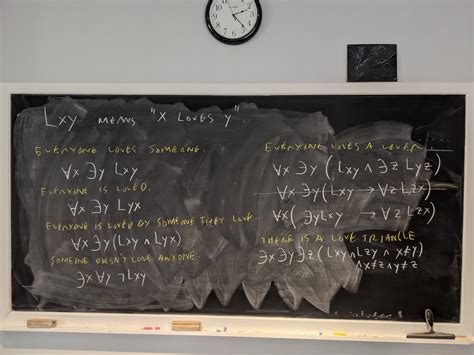 Lxy MEANS "X LOVES Y"
EVERYONE LOVES SOMEONE.
∀x ∃y Lxy
EVERYONE IS LOVED.
∀x ∃y Lyx
EVERYONE IS LOVED BY SOMEONE THEY LOVE
∀x ∃y(Lxy ∧ Lyx)
SOMEONE DOESN'T LOVE ANYONE.
∃x ∀y ¬Lxy
EVERYONE LOVES A LOVER
∀x ∃y (Lxy ∧ ∃z Lyz)
∀x ∃y(Lxy → ∀z Lzx)
∀x(∃yLxy → ∀z Lzx)
THERE IS A LOVE TRIANGLE
∃x ∃y ∃z (Lxy ∧ Lzy ∧ x≠y)
∧x≠z∧y≠z